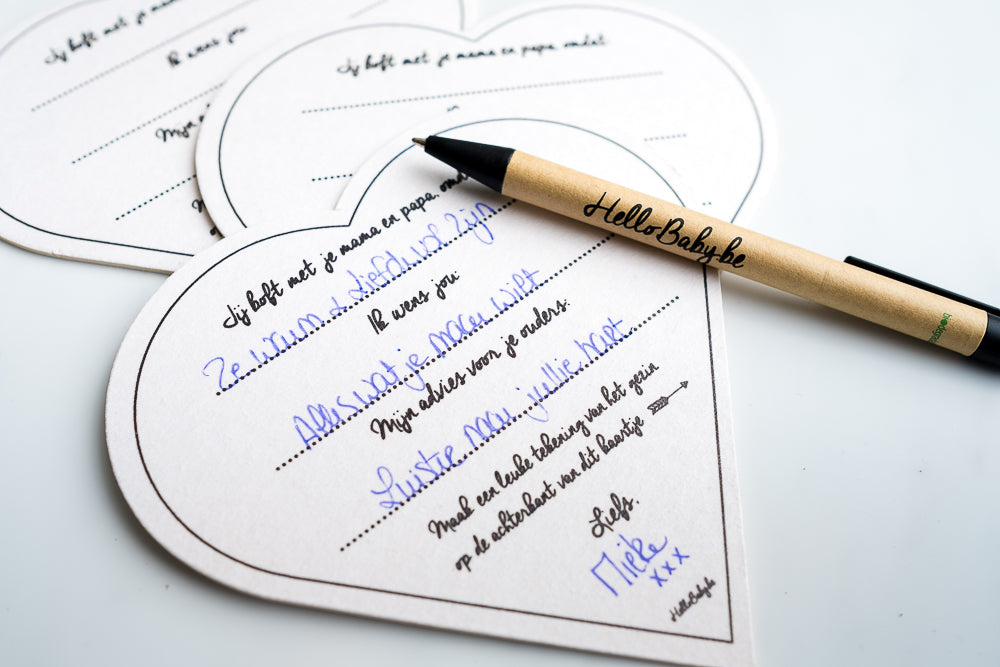 Jij boft met je mama
Ik wens jou
Mijn
Jij boft met je mama en papa, omdat
Jij boft met je mama en papa,
Ze warm & Liefdevol zijn
Ik wens jou:
Alles wat je maar wilt
Mijn advies voor je ouders:
Luister naar jullie hart
Maak een leuke tekening van het gezin
op de achterkant van dit kaartje
Liefs,
Mieke
xxx
HelloBaby.be
HelloBaby.be